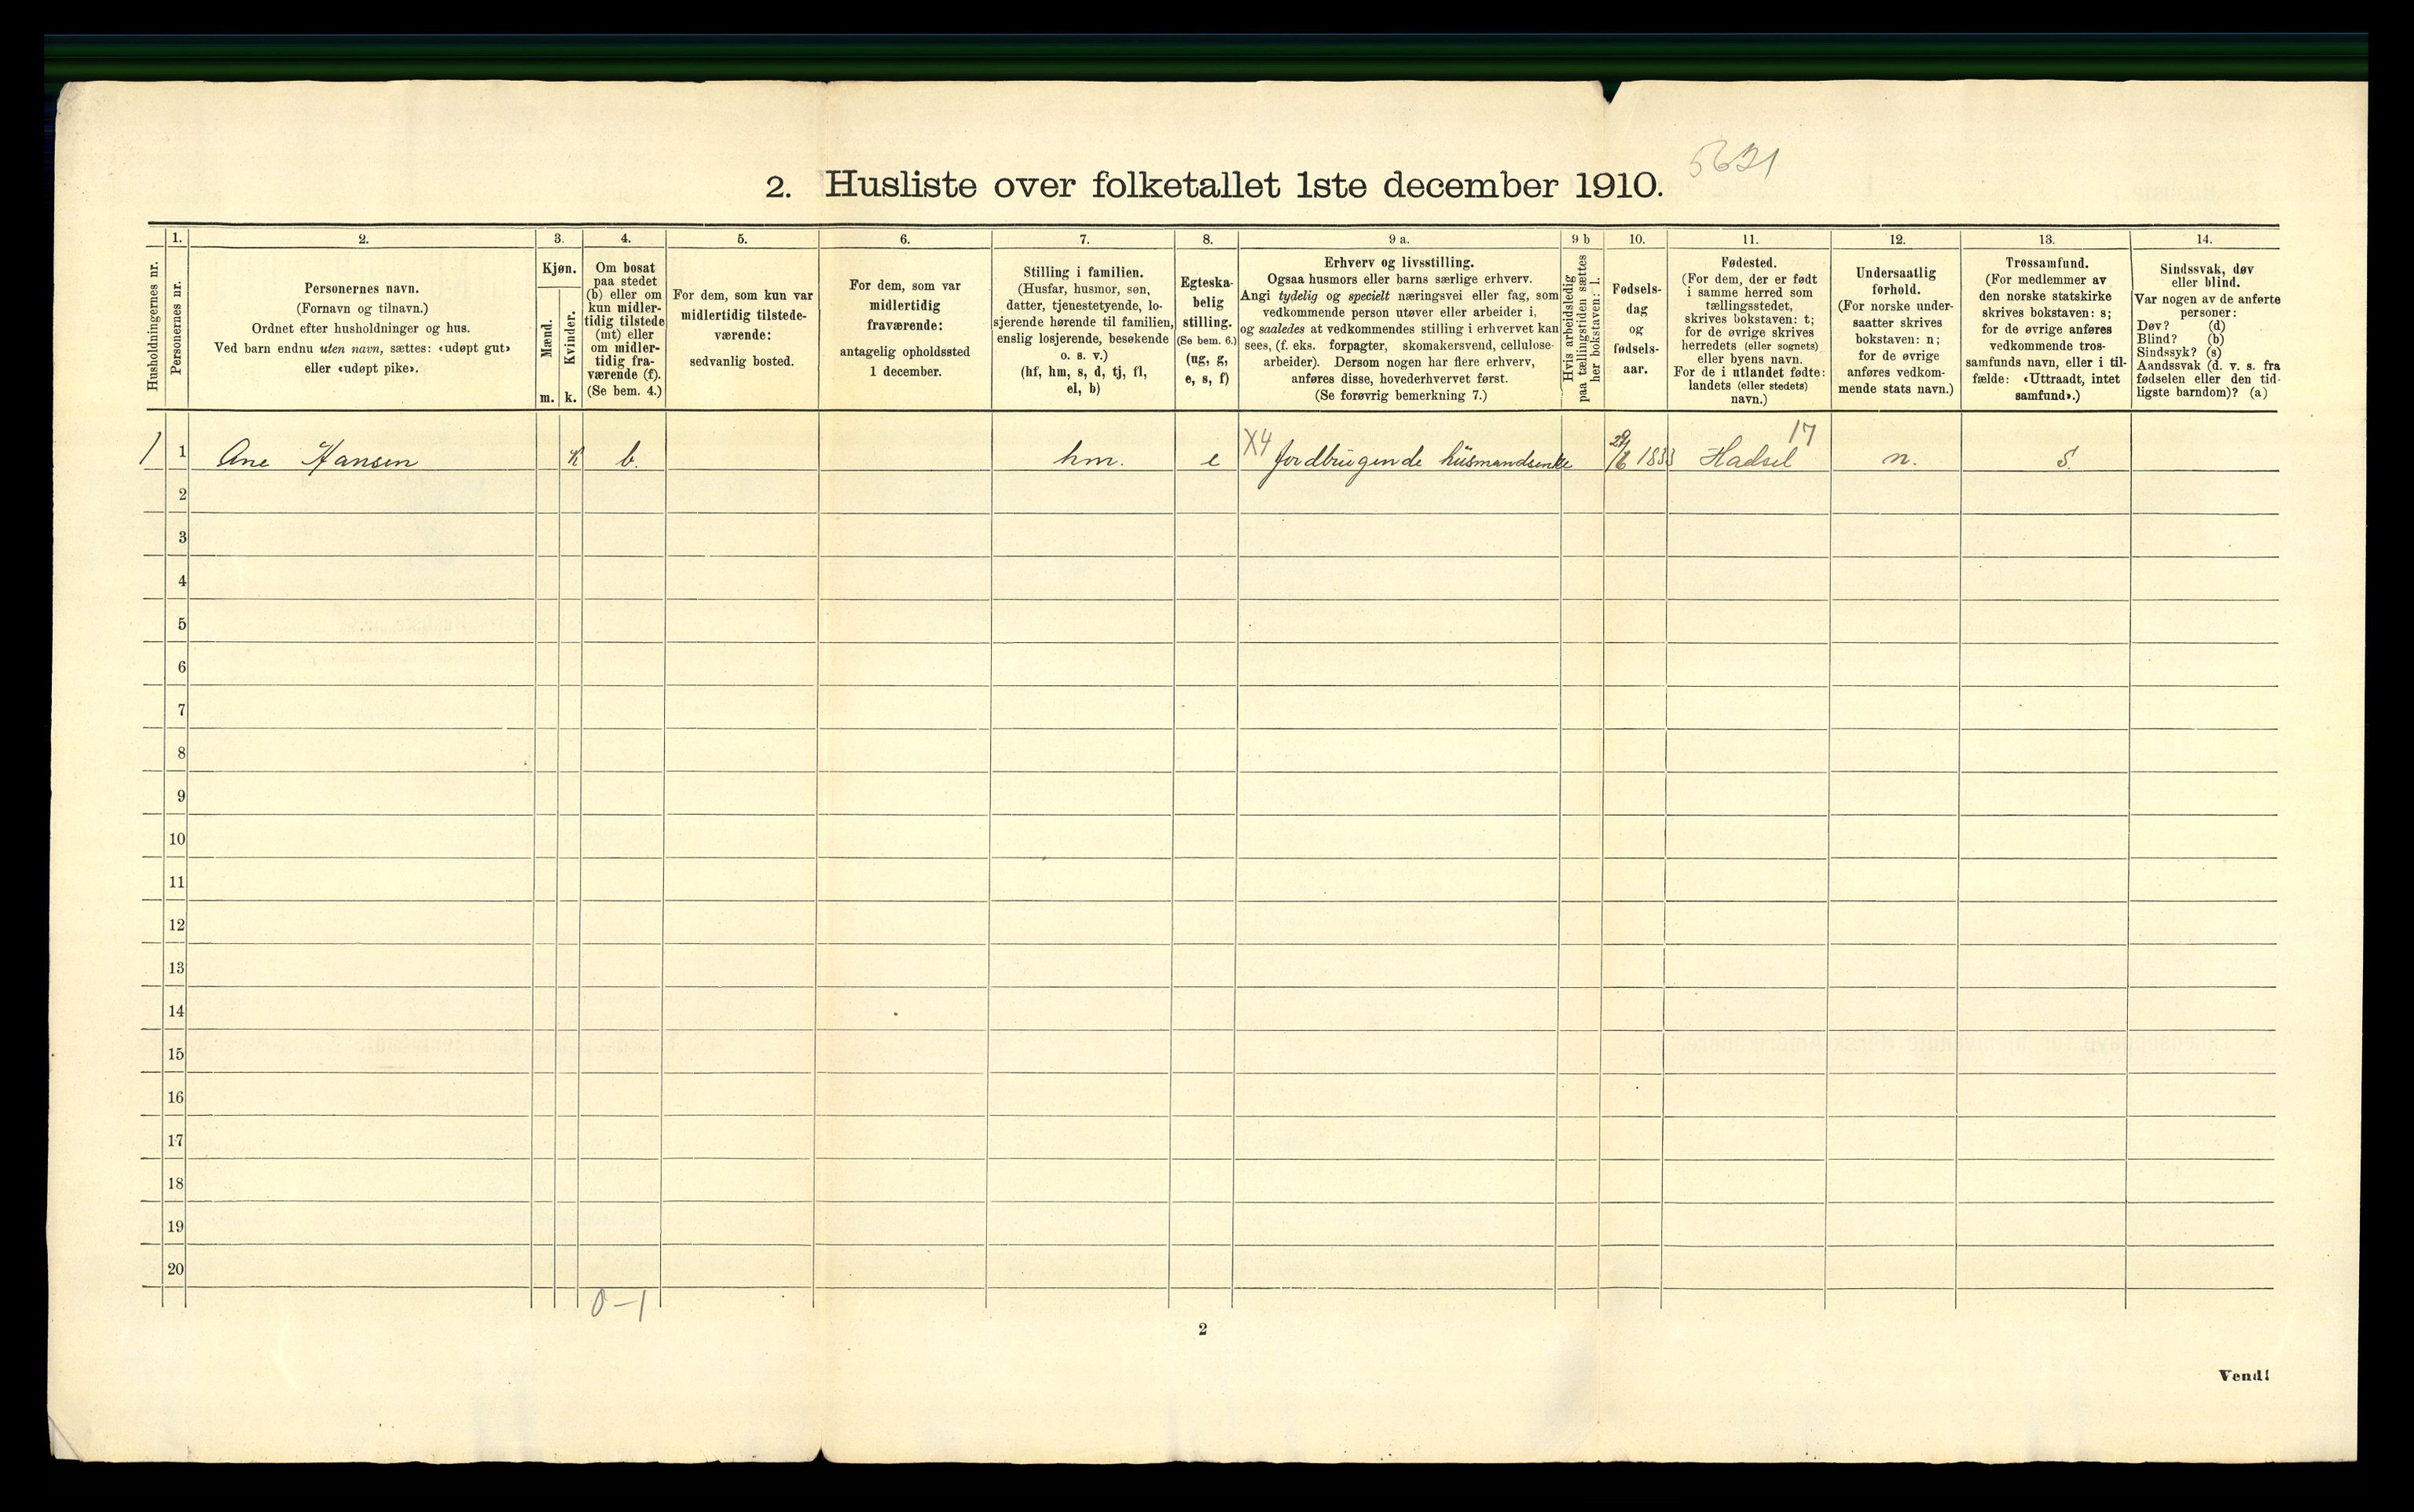 5631
2. Husliste over folketallet 1ste december 1910.
1. 2. 3. 4. 5. 6. 7. 8. 9 a. 9 b 10. 11. 12. 13. 14.
Husholdningernes nr.
Personernes nr.
Personernes navn.
(Fornavn og tilnavn.)
Ordnet efter husholdninger og hus.
Ved barn endnu uten navn, sættes: «udøpt gut»
eller «udøpt pike».
Kjøn.
Mænd.
Kvinder.
m. k.
Om bosat
paa stedet
(b) eller om
kun midler-
tidig tilstede
(mt) eller
om midler-
tidig fra-
værende (f).
(Se bem. 4.)
For dem, som kun var
midlertidig tilstede-
værende:
sedvanlig bosted.
For dem, som var
midlertidig
fraværende:
antagelig opholdssted
1 december.
Stilling i familien.
(Husfar, husmor, søn,
datter, tjenestetyende, lo-
sjerende hørende til familien,
enslig losjerende, besøkende
o. s. v.)
(hf, hm, s, d, tj, fl,
el, b)
Egteska-
belig
stilling.
(Se bem. 6.)
(ug, g,
e, s, f)
Erhverv og livsstilling.
Ogsaa husmors eller barns særlige erhverv.
Angi tydelig og specielt næringsvei eller fag, som
vedkommende person utøver eller arbeider i,
og saaledes at vedkommendes stilling i erhvervet kan
sees, (f. eks. forpagter, skomakersvend, cellulose-
arbeider). Dersom nogen har flere erhverv,
anføres disse, hovederhvervet først.
(Se forøvrig bemerkning 7.)
Hvis arbeidsledig
paa tællingstiden sættes
her bokstaven: l.
Fødsels-
dag
og
fødsels-
aar.
Fødested.
(For dem, der er født
i samme herred som
tællingsstedet,
skrives bokstaven: t;
for de øvrige skrives
herredets (eller sognets)
eller byens navn.
For de i utlandet fødte:
landets (eller stedets)
navn.)
Undersaatlig
forhold.
(For norske under-
saatter skrives
bokstaven: n;
for de øvrige
anføres vedkom-
mende stats navn.)
Trossamfund.
(For medlemmer av
den norske statskirke
skrives bokstaven: s;
for de øvrige anføres
vedkommende tros-
samfunds navn, eller i til-
fælde: «Uttraadt, intet
samfund».)
Sindssvak, døv
eller blind.
Var nogen av de anførte
personer:
Døv? (d)
Blind? (b)
Sindssyk? (s)
Aandssvak (d. v. s. fra
fødselen eller den tid-
ligste barndom)? (a)
1 1 Ane Hansen k b. hm. e X4 jordbrugende husmandsenke 1833 Hadsel 17 n. s.
2
3
4
5
6
7
8
9
10
11
12
13
14
15
16
17
18
19
20
0-1
2
Vend!